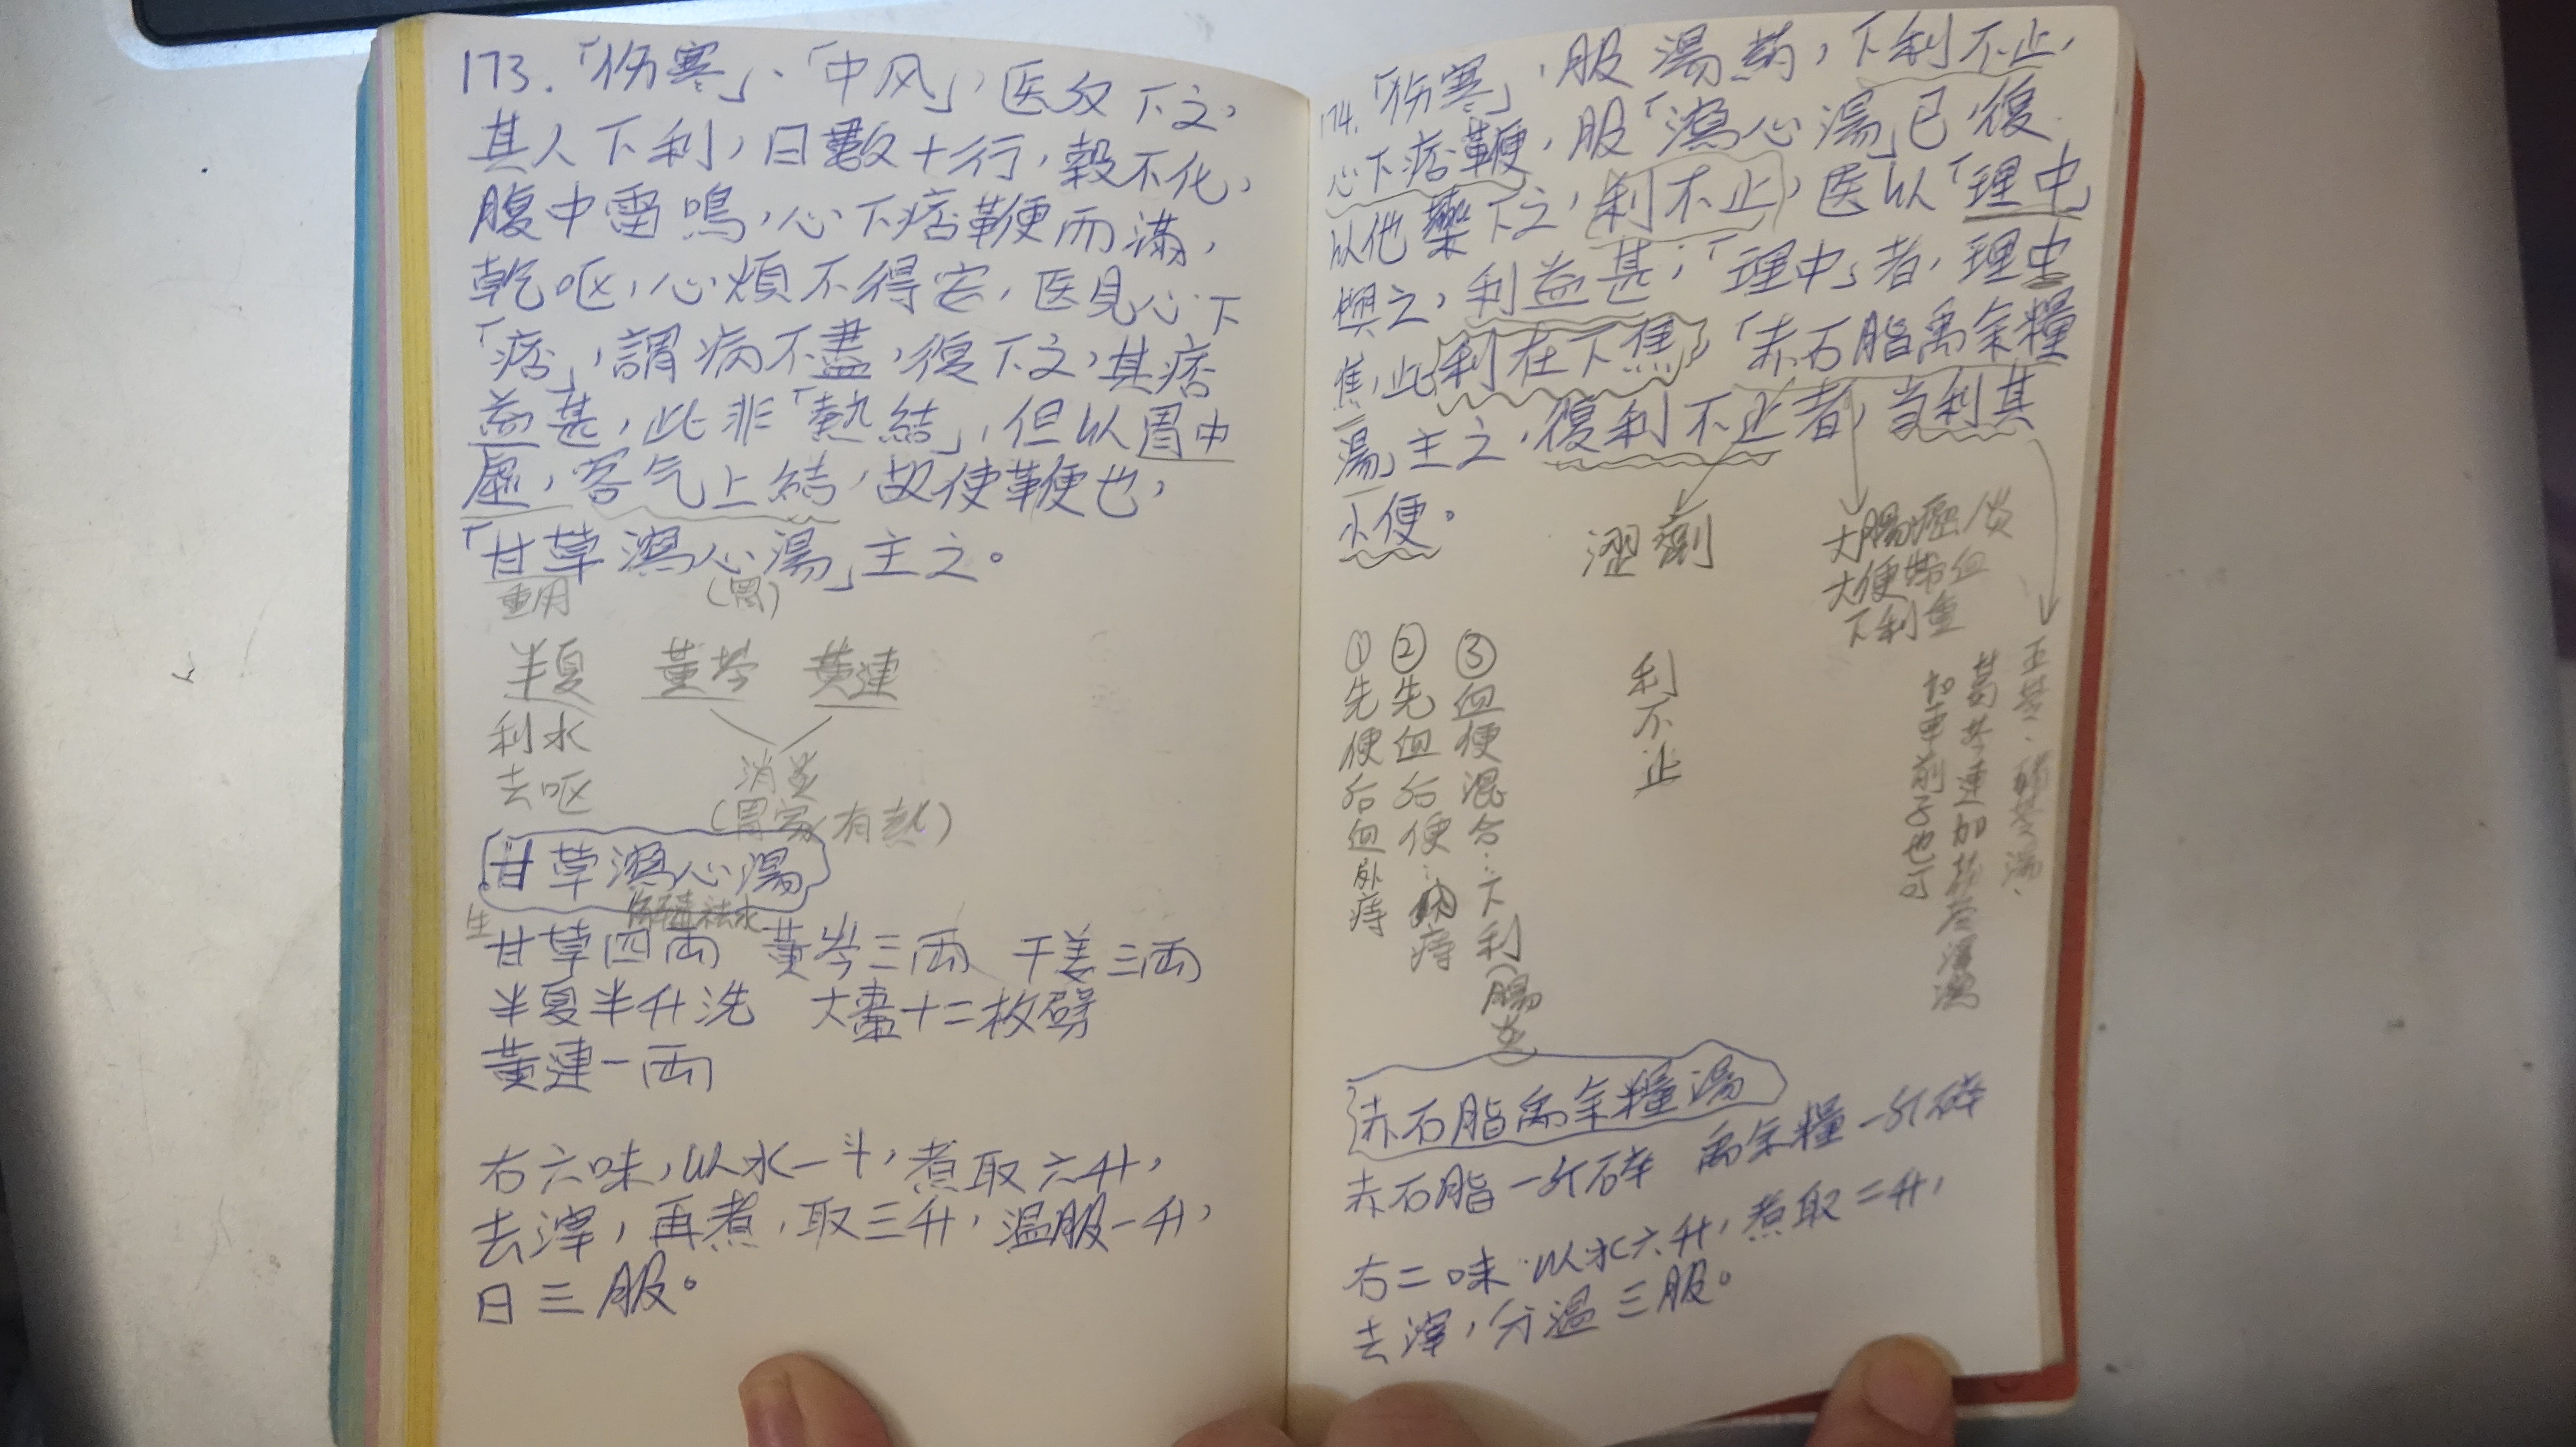 173.「伤寒」、「中风」，医反下之，
其人下利，日數十行，穀不化，
腹中雷鳴，心下痞鞕而滿，
乾呕，心煩不得安，医見心下
「痞」，謂病不盡，復下之，其痞
益甚，此非「熱結」，但以胃中
虛，客气上結，故使鞕也，
「甘草瀉心湯」主之。
重用 (胃)
半夏 黃芩 黃連
利水
去呕
消炎
(胃家有熱)
甘草瀉心湯
生 解毒祛水
甘草四両 黃岑三両 干姜三両
半夏半升洗 大棗十二枚劈
黃連一両
右六味，以水一斗，煮取六升，
去滓，再煮，取三升，温服一升，
日三服。
174.「伤寒」，服湯药，下利不止，
心下痞鞕，服「瀉心湯」已，復
以他藥下之，利不止，医以「理中」
與之，利益甚；「理中」者，理中
焦，此利在下焦，「赤石脂禹余糧
湯」主之，復利不止者，当利其
小便。
澀劑
利不止
大腸癌/炎
大便帶血
下利重
五苓、豬苓湯、
葛芩連加茯苓澤瀉
加車前子也可
①先便后血 外痔
②先血后便…內痔
③血便混合…下利(腸炎)
赤石脂禹余糧湯
赤石脂一斤碎 禹余糧一斤碎
右二味 以水六升，煮取二升，
去滓，分温三服。